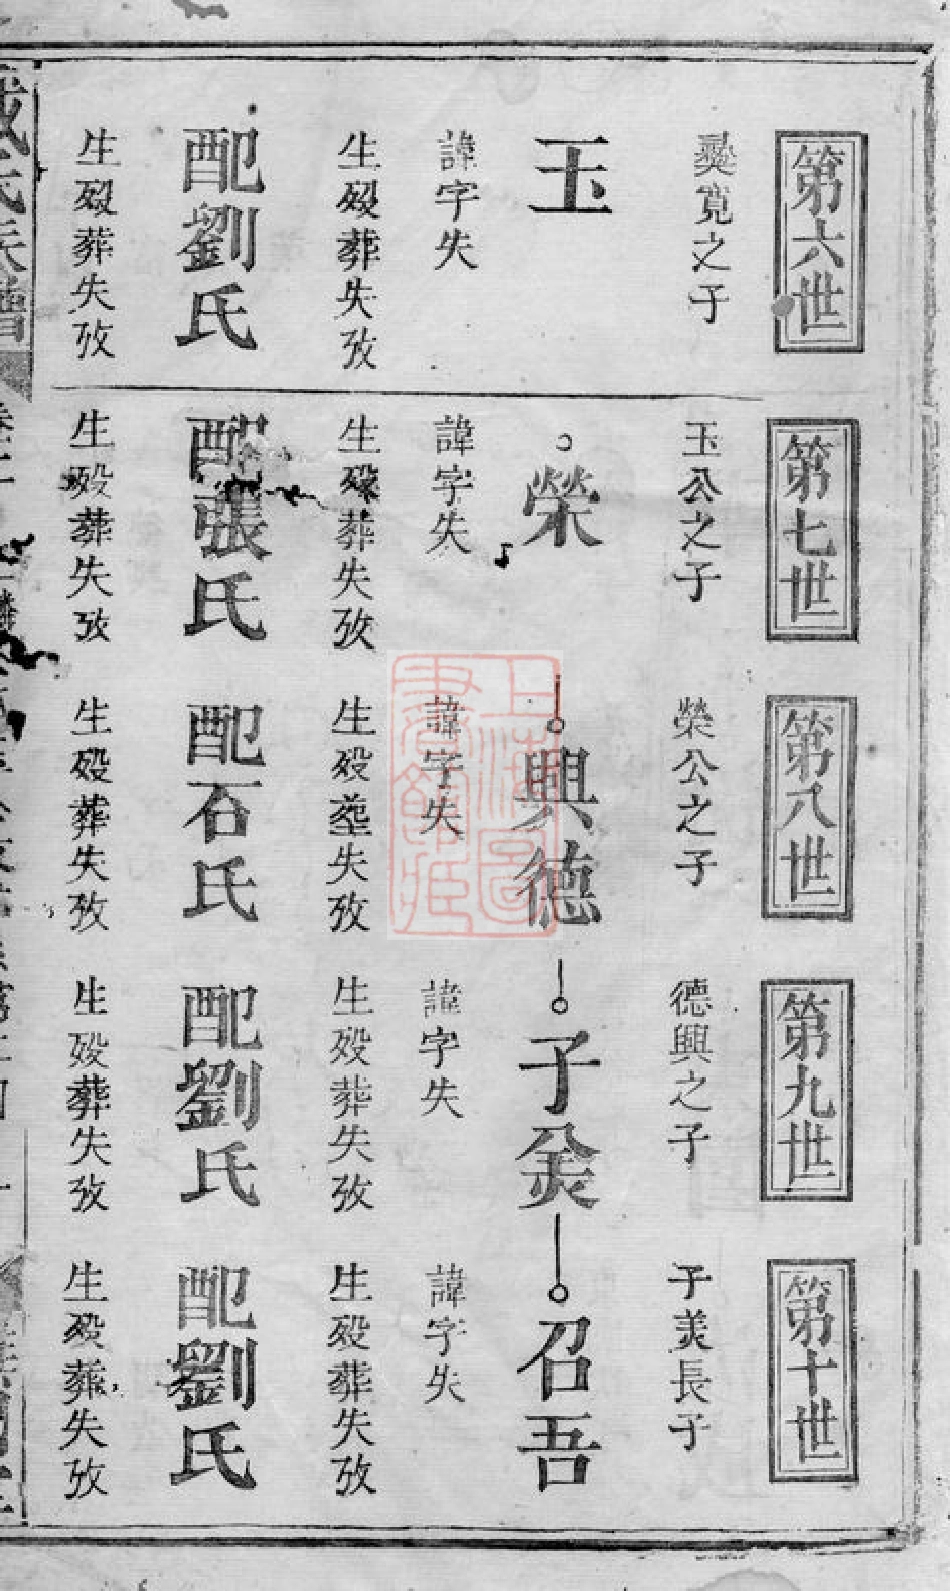 第六世
彛寬之子
玉
諱字失
生殁葬失攷
配劉氏
生殁葬失攷
第七世
玉公之子
榮
諱字失
生殁葬失攷
配張氏
生殁葬失攷
第八世
榮公之子
興德
諱字失
生殁塟失攷
配石氏
生殁葬失攷
第九世
德興之子
子美
諱字失
生殁葬失攷
配劉氏
生殁葬失攷
第十世
子美長子
召吾
諱字失
生殁葬失攷
配劉氏
生殁葬失攷
上海圖書館藏
氏族譜